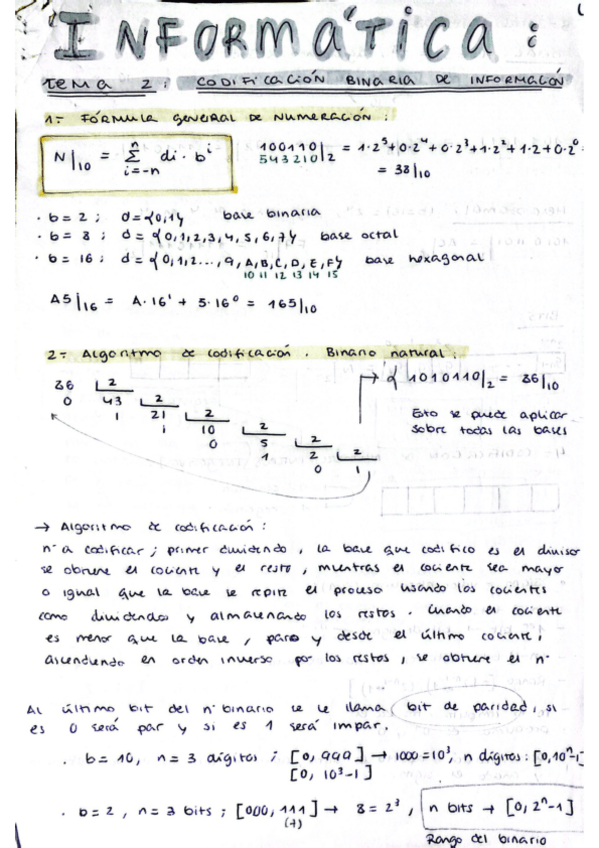 INFORMÁTICA:
TEMA 2: CODIFICACIÓN BINARIA DE INFORMACIÓN
1- FÓRMULA GENERAL DE NUMERACIÓN:
N|10 = n Σ i=-n di · b^i
100110|2 = 1·2^5+0·2^4+0·2^3+1·2^2+1·2+0·2^0
543210
= 38|10
· b = 2 ; d = {0,1} base binaria
· b = 8 ; d = {0,1,2,3,4,5,6,7} base octal
· b = 16 ; d = {0,1,2...,9,A,B,C,D,E,F} base hexagonal
10 11 12 13 14 15
A5|16 = A·16^1 + 5·16^0 = 165|10
2- Algoritmo de codificación. Binario natural:
86 2
0 43 2
1 21 2
1 10 2
0 5 2
1 2 2
0 1
→ { 1010110|2 = 86|10
Esto se puede aplicar
sobre todas las bases
→ Algoritmo de codificación:
nº a codificar; primer dividendo, la base que codifico es el divisor
se obtiene el cociente y el resto, mientras el cociente sea mayor
o igual que la base se repite el proceso usando los cocientes
como dividendos y almacenando los restos. Cuando el cociente
es menor que la base, paro y desde el último cociente,
ascendiendo en orden inverso por los restos, se obtiene el nº
Al último bit del nº binario se le llama bit de paridad, si
es 0 será par y si es 1 será impar.
· b = 10, n = 3 dígitos ; [0, 999] → 1000 = 10^3, n dígitos: [0,10^n-1]
[0, 10^3-1]
· b = 2, n = 3 bits ; [000, 111] → 8 = 2^3, n bits → [0, 2^n-1]
(7)
Rango del binario